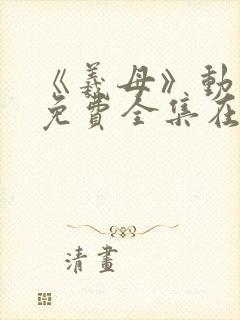 《義母》動
免費全集在
清畫